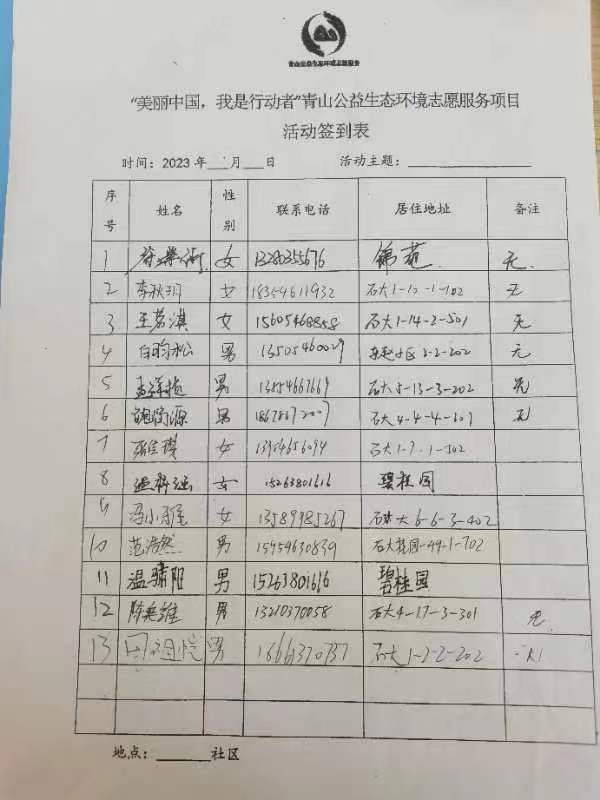 青山公益生态环境志愿服务
“美丽中国，我是行动者”青山公益生态环境志愿服务项目
活动签到表
时间：2023 年 月 日 活动主题：
序号 姓名 性别 联系电话 居住地址 备注
1 女 13280355676 锦苑 无
2 李秋玥 女 18354611932 石大1-12-1-102 无
3 王茗淇 女 15605468858 石大1-14-2-501 无
4 白昀松 男 13505460029 2-2-202 无
5 男 13854667669 石大5-13-3-202 无
6 男 18678672007 石大4-4-4-607 无
7 女 13954656094 石大1-7-1-302
8 女 15263801616 碧桂园
9 冯小雁 女 13589985267 石大6-6-3-402
10 范浩然 男 15954630839 石大花园-49-1-702
11 温骕阳 男 15263801616 碧桂园
12 陈奕雄 男 13210370058 石大4-17-3-301 无
13 男 石大1-2-2-202
地点： 社区